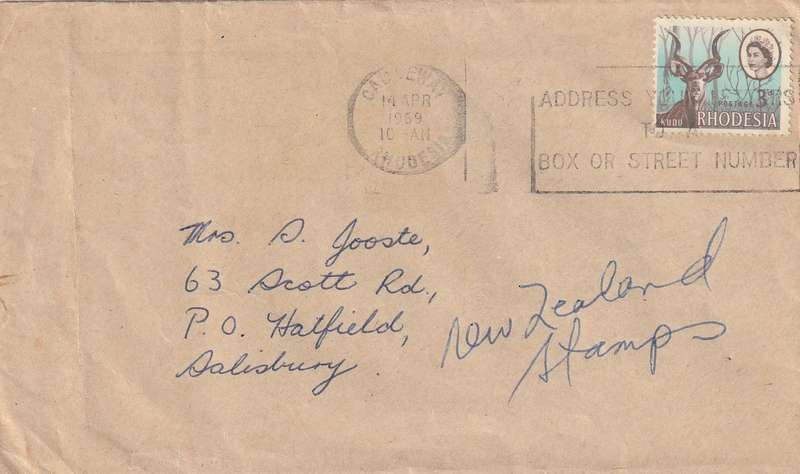 CAUSEWAY
14 APR
1969
10 AM
RHODESIA
ADDRESS
TO A
BOX OR STREET NUMBER
POSTAGE 3d
KUDU RHODESIA
Mrs. S. Jooste,
63 Scott Rd.,
P.O. Hatfield,
Salisbury.
New Zealand
Stamps